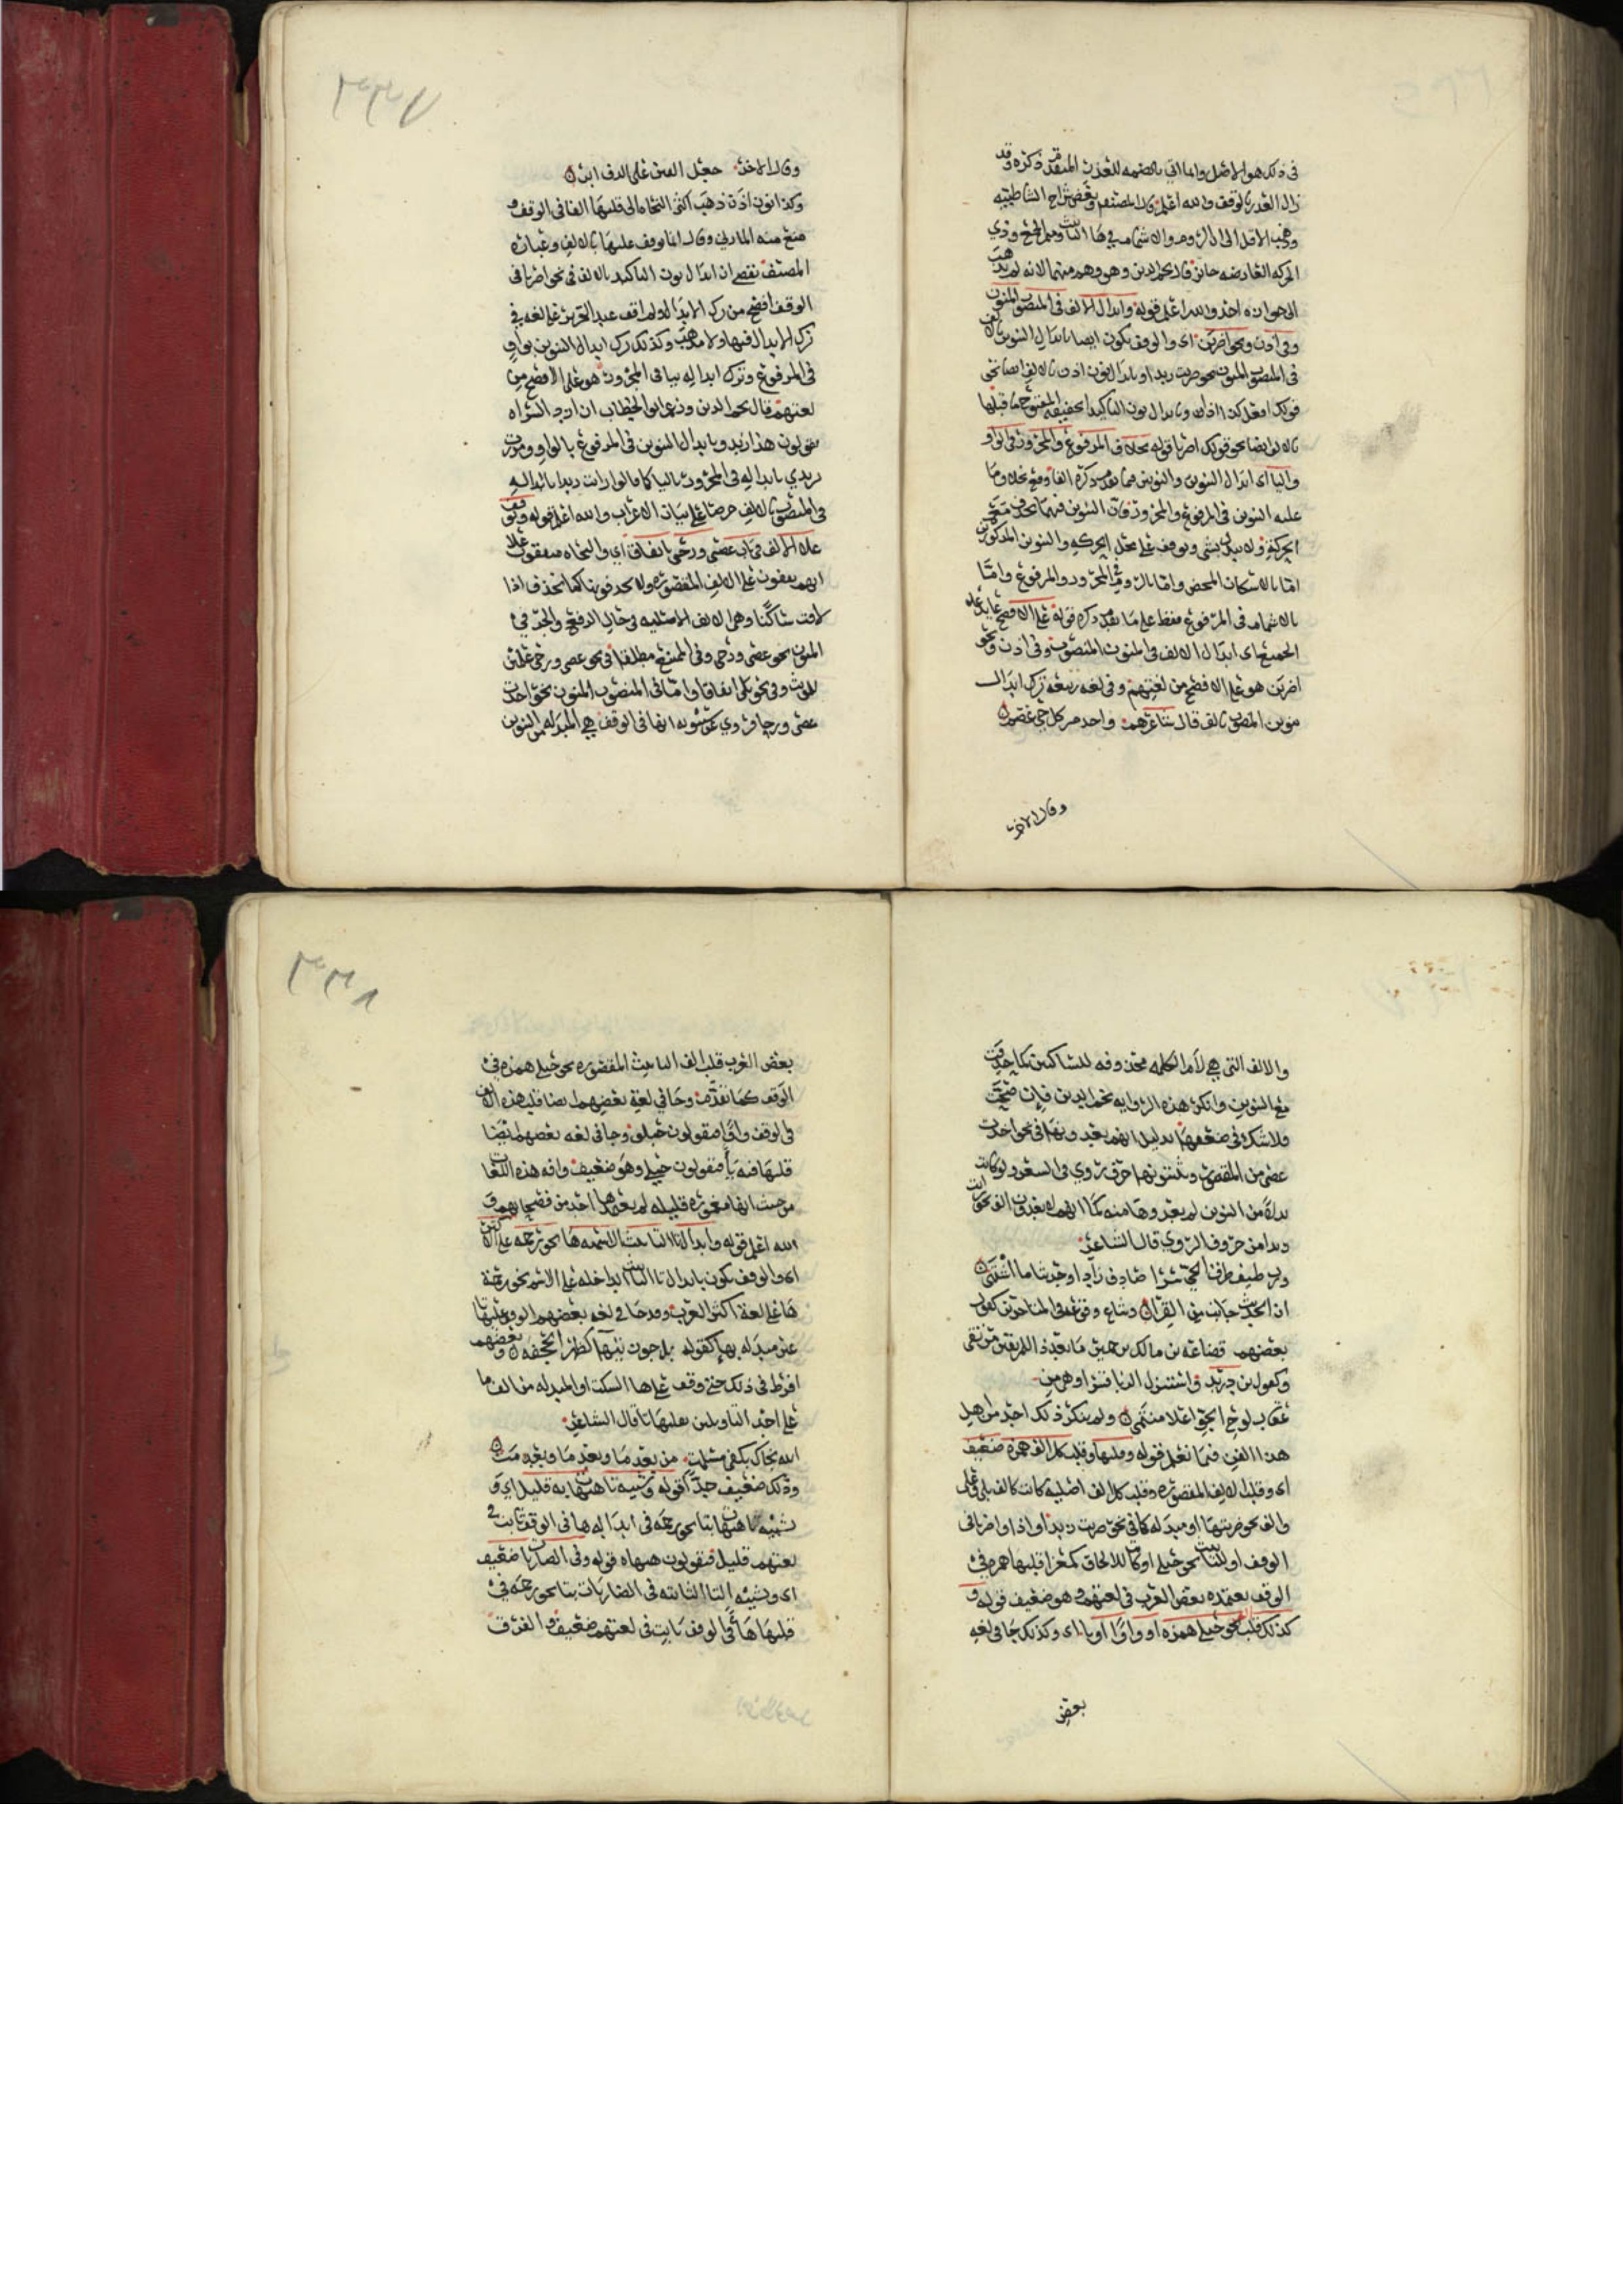 في ذلك هو الاصل وانما اتي بالضمه للعذر المتقدم ذكره وقد
زال العذر بالوقف والله اعلم قال المصنف وبعض شراح الشاطبيه
وذهب الاقل الى ان الروم والاشمام في ها التانيث وميم الجمع وذي
الحركه العارضه جايز قال نجم الدين وهو وهم منهما لانه لم يذهب
الى جوازه احد والله اعلم قوله وابدال الالف في المنصوب المنون
وفي اذن ونحو اضربن اي والوقف يكون ايضا بابدال التنوين بالالف
في المنصوب المنون نحو ضربت زيدا وبابدال نون اذن بالالف ايضا نحو
قولك افعل كذا اذا وبابدال نون التاكيد الخفيفه المفتوح ما قبلها
بالالف ايضا نحو قولك اضربا قوله بخلاف المرفوع والمجرور في الواو
واليا اي ابدال التنوين والنونين فيما تقدم ذكره الفا وقع بخلاف ما
عليه التنوين في المرفوع والمجرور فان التنوين فيهما يحذف مع
الحركة ولا يبدل بشي ويوقف على محل الحركه والتنوين المذكورين
اما بالاسكان المحض واما بالروم في المجرور والمرفوع واما
بالاشمام في المرفوع فقط على ما تقدم ذكره قوله على الافصح عايد على
الجميع اي ابدال الالف في المنون المنصوب وفي اذن ونحو
اضربن هو على الافصح من لغتهم وفي لغه ربيعه ترك ابدال
تنوين المنصوب بالف قال شاعرهم واخذ من كل حي عصم
وقال الاخر
وقال الاخر جعل القين على الدف ابر
وكذا نون اذن ذهب اكثر النحاه الى قلبها الفا في الوقف و
منع منه المازني وقال انما يوقف عليها بالالف وعباره
المصنف تقتضي ان ابدال نون التاكيد بالالف في نحو اضربا في
الوقف افصح من ترك الابدال ولم اقف عند التحرير على لغه في
ترك الابدال فيها ولا مذهب وكذلك ترك ابدال التنوين بواو
في المرفوع وترك ابداله بيا في المجرور هو على الافصح من
لغتهم قال نجم الدين وزعم ابو الخطاب ان ازد السراه
يقولون هذا زيدو بابدال التنوين في المرفوع بالواو ومررت
بزيدي بابداله في المجرور باليا كما قالوا رايت زيدا بابداله
في المنصوب بالالف حرصا على بيان الاعراب والله اعلم قوله ويوقف
على الالف في باب عصى ورحى باتفاق اي والنحاه متفقون على
انهم يقفون على الالف المقصوره ولا يحذفونها كما تحذف اذا
لاقت ساكنا وهي الالف الاصليه في حال الرفع والجر في
المنون نحو عصى ورحى وفي الممتنع مطلقا في نحو عصى ورحى علمين
للمونث وفي نحو بلى اتفاقا واما في المنصوب المنون نحو اخذت
عصى ورحا فروي عن سيبويه انها في الوقف هي المبدله من التنوين
والالف التي هي لام الكلمه محذوفه للساكنين كما حذفت
مع التنوين وانكر هذه الروايه نجم الدين فان صحت
فلا شك في ضعفها بدليل انهم يعدونها في نحو اخذت
عصى من المقصور ويثبتونها حرف روي في الشعر ولو كانت
بدلا من التنوين لم يعدوها منه كما انهم لا يعدون الف نحو رايت
زيدا من حروف الروي قال الشاعر
ورب ضيف طرق الحي سرا صادف زادا وحديثا ما اشتهى
ان الحديث جانب من القرا وشاع وقوعه في المتاخرين كقول
بعضهم قضاعه بن مالك بن حمير ما بعد ذا للمرتقين من مرتقى
وكقول بن دريد واستنزل الزبا قسرا وهي من
عقاب لوح الجو اعلا منتمى ولم ينكر ذلك احد من اهل
هذا الفن فيما نعلم قوله وقلبها وقلب كل الف همزه ضعيف
اي وقلب الالف المقصوره وقلب كل الف اصليه كانت كالف بلى وعلى
والف نحو ضربتها او مبدله كما في نحو ضربت زيدا واذا واضربا في
الوقف او للتانيث نحو حبلى او كانت للالحاق كمعزا قلبها همزه في
الوقف يعتمده بعض العرب في لغتهم وهو ضعيف قوله و
كذلك قلب الف نحو حبلى همزه او واوا او يا اي وكذلك جا في لغه
بعض
بعض العرب قلب الف التانيث المقصوره نحو حبلى همزه في
الوقف كما تقدم وجا في لغة بعضهم ايضا قلب هذه الالف
في الوقف واوا فيقولون حبلو وجا في لغه بعضهم ايضا
قلبها فيه يا فيقولون حبلي وهو ضعيف وافه هذه اللغات
من حيث انها مهجوره قليله لم يعتمدها احد من فصحايهم و
الله اعلم قوله وابدال تا التانيث الاسميه ها نحو رحمه على الاكثر
اي والوقف يكون بابدال تا التانيث الداخله على الاسم نحو رحمة
ها على لغة اكثر العرب وقد جا في لغه بعضهم الوقف عليها تا
غير مبدله بها كقوله بل جوز تيها كظهر الحجفه وبعضهم
افرط في ذلك حتى وقف على ها السكت او المبدله من الف ما
على احد التاويلين بقلبها تا قال الشاعر
الله نجاك بكفي مسلمت من بعد ما وبعد ما وبعدمت
وذلك ضعيف جدا قوله وتشبيه تا هيهات به قليل اي و
تشبيه تا هيهات بتا نحو رحمه في ابداله ها في الوقف ثابت في
لغتهم قليل فيقولون هيهاه قوله وفي الضاربات ضعيف
اي وتشبيه التا الثابته في الضاربات بتا نحو رحمه في
قلبها ها في الوقف ثابت في لغتهم ضعيف والفرق